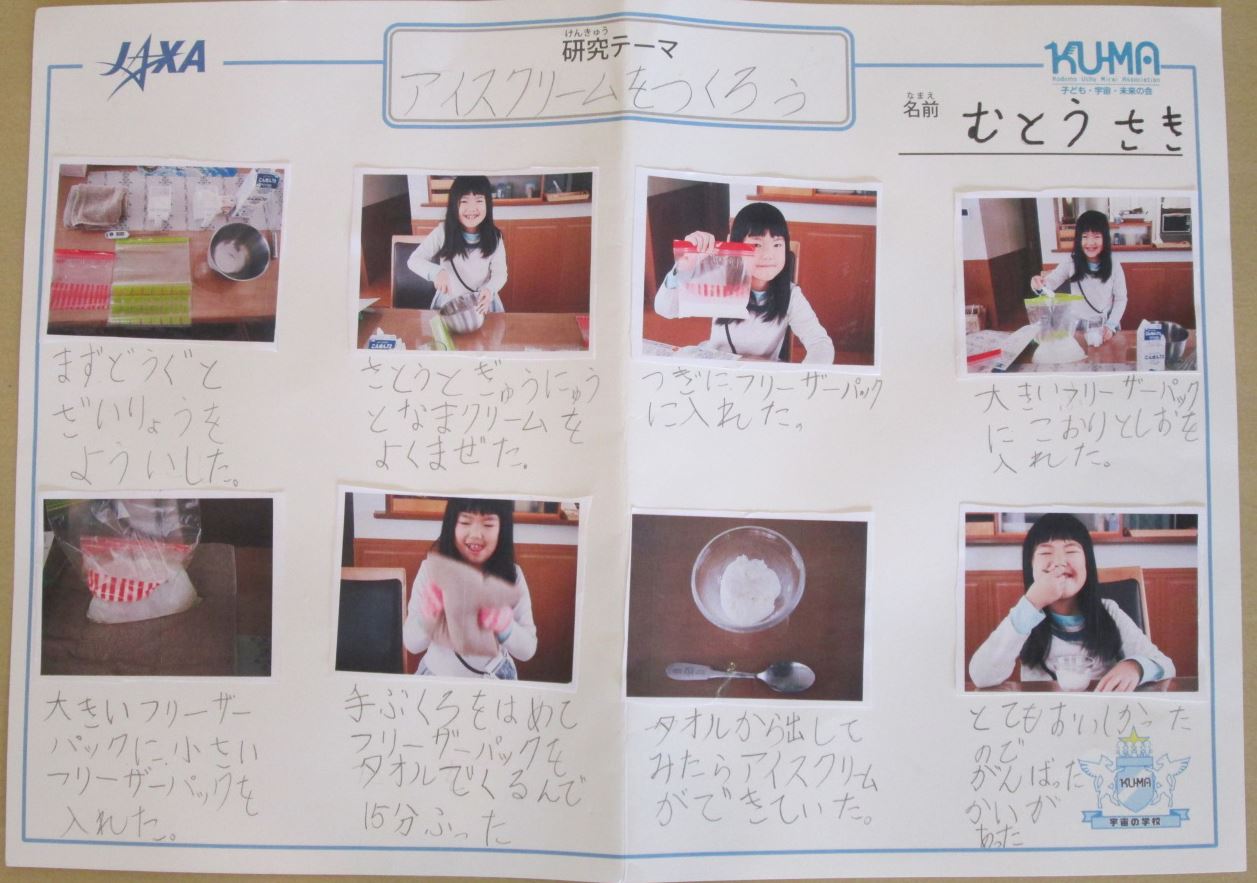 JAXA
けんきゅう
研究テーマ
アイスクリームをつくろう
KU-MA
Kodomo Uchu Mirai Association
子ども・宇宙・未来の会
なまえ
名前 むとうさき
まずどうぐと
ざいりょうを
よういした。
さとうとぎゅうにゅう
となまクリームを
よくまぜた。
つぎにフリーザーパック
に入れた。
大きいフリーザーパック
にこおりとしおを
入れた。
大きいフリーザー
パックに小さい
フリーザーパックを
入れた。
手ぶくろをはめて
フリーザーパックを
タオルでくるんで
15分ふった
タオルから出して
みたらアイスクリム
ができていた。
とてもおいしかった
ので
がんばった
かいが
あった
KU-MA
宇宙の学校